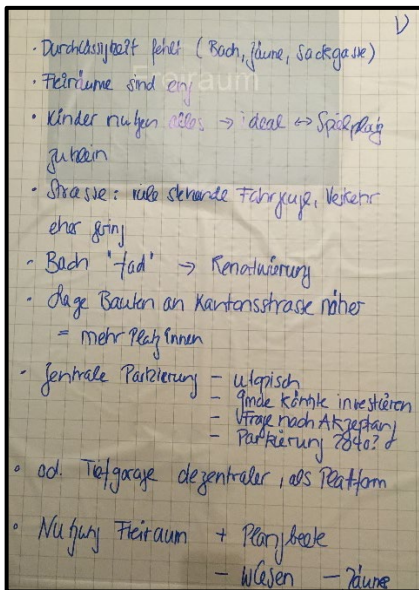 V
· Durchlässigkeit fehlt (Bach, Zäune, Sackgasse)
Freiraum
· Freiräume sind eng
· Kinder nutzen alles → ideal ↔ Spielplatz
zu klein
· Strasse: viele stehende Fahrzeuge, Verkehr
eher gering
· Bach "fad" → Renaturierung
· Lage Bauten an Kantonsstrasse näher
= mehr Platz innen
· Zentrale Parkierung – utopisch
– Gmde könnte investieren
– Frage nach Akzeptanz
– Parkierung 2040?
· od. Tiefgarage dezentraler, als Platform
· Nutzung Freiraum + Pflanzbeete
– Wiesen – Zäune